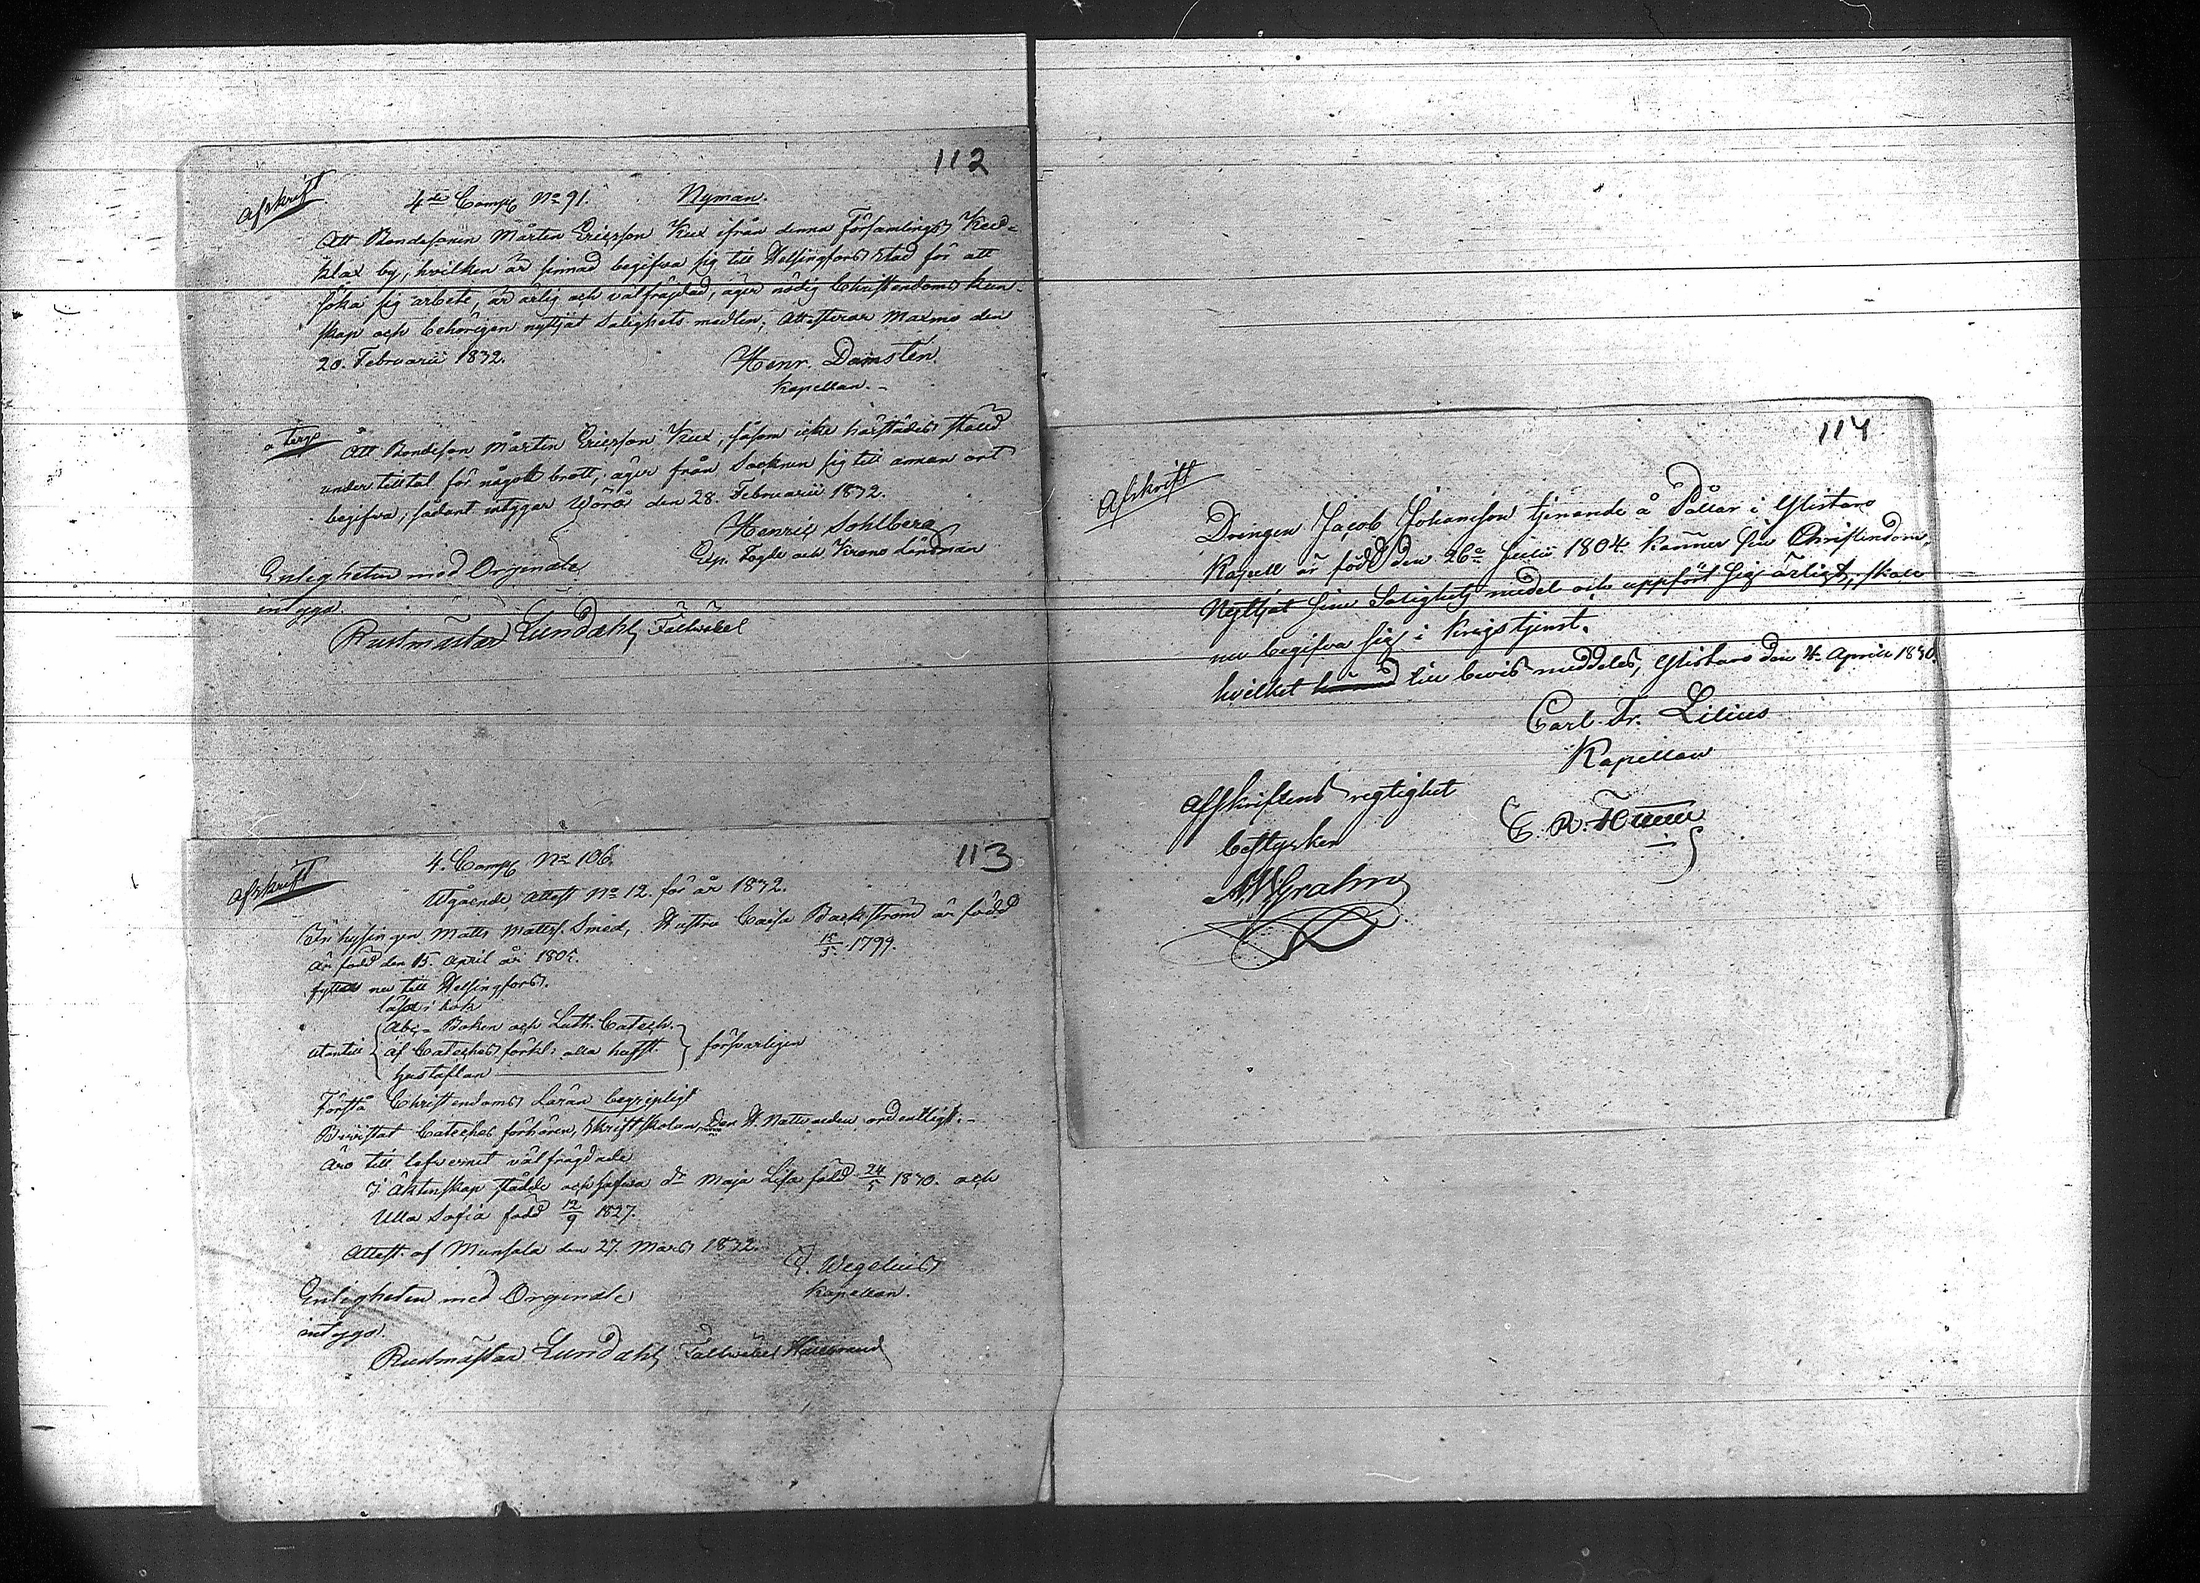 112
Afskrift
4de Comp. No 91. Nyman.
Att Bondesonen Mårten Ericsson Kux ifrån denna Församlings Keck-
klax by, hvilken är sinnad begifva sig till Helsingfors stad för att
söka sig arbete, är ärlig och välfrägdad, äger nödig Christendoms kun-
skap och behörigen nyttjat salighets medlen; Attesterar Maxmo den
20. Februarii 1832.
Henr. Damstén
Kapellan.
a tergo
Att Bondeson Mårten Ericsson Kux, såsom icke härstädes ståend
under tilltal för något brott, äger från Socknen sig till annan ort
begifva, sådant intygar Wörå den 28. Februarii 1832.
Henric Sohlberg
Exp. Fogde och Krono Länsman
Enligheten med Originale
intyga
Rustmästar Lundahl Fältwäbel
113
Afskrift
4. Comp. No 106.
Utgående Attest No 12. för år 1832.
Inhysingen Matts Matts. Smed, Hustru Caisa Backström är född
är född den 15. April år 1805. 15/5. 1799.
flyttar nu till Helsingfors.
läser i bok
utantill Abc-Boken och Luth. Catech.
af Cateches förkl: alla hufst. försvarligen
hustaflan
Förstå Christendoms Läran begripligt
Bivistat Cateches förhören, Skriftskolan, Den H. Nattvarden ordentligt.
Äro till lefvernet välfrägdade
I Äktenskap stadde och hafva dr Maja Lisa född 24/5 1830. och
Ulla Sofia född 12/9 1827.
Attest. af Munsala den 27. Mars 1832.
E. Wegelius
Kapellan.
Enligheten med Originale
intyga.
Rustmästar Lundahl Fältwäbel
114
Afskrift
Drängen Jacob Johansson tjenande å Pållar i Ylistaro
Kapell är född den 26e Julii 1804. känner sin Christendom,
Nyttjat sine Salighets medel och uppfört sig ärligt, skall
nu begifva sig i Krigstjenst.
hvilket till bevis meddeles, Ylistaro den 4. Aprill 1830.
Carl. Fr. Lilius
Kapellan
Afskriftens regtighet
bestyrker
C. R.